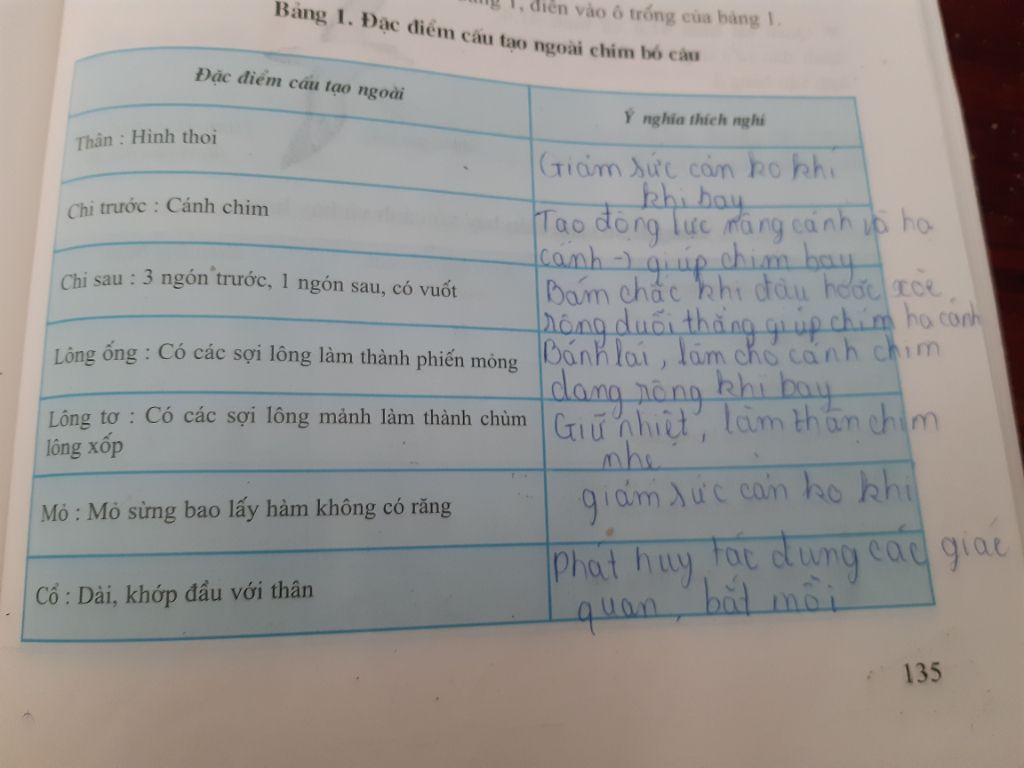 bảng 1, điền vào ô trống của bảng 1.
Bảng 1. Đặc điểm cấu tạo ngoài chim bồ câu
Đặc điểm cấu tạo ngoài
Ý nghĩa thích nghi
Thân : Hình thoi
Giảm sức cản ko khí
khi bay
Chi trước : Cánh chim
Tạo động lực nâng cánh và hạ
cánh → giúp chim bay
Chi sau : 3 ngón trước, 1 ngón sau, có vuốt
Bám chắc khi đậu hoặc xòe
rộng duỗi thẳng giúp chim hạ cánh
Lông ống : Có các sợi lông làm thành phiến mỏng
Bánh lái, làm cho cánh chim
dang rộng khi bay
Lông tơ : Có các sợi lông mảnh làm thành chùm
lông xốp
Giữ nhiệt, làm thân chim
nhẹ
Mỏ : Mỏ sừng bao lấy hàm không có răng
giảm sức cản ko khí
Cổ : Dài, khớp đầu với thân
phát huy tác dụng các giác
quan, bắt mồi
135